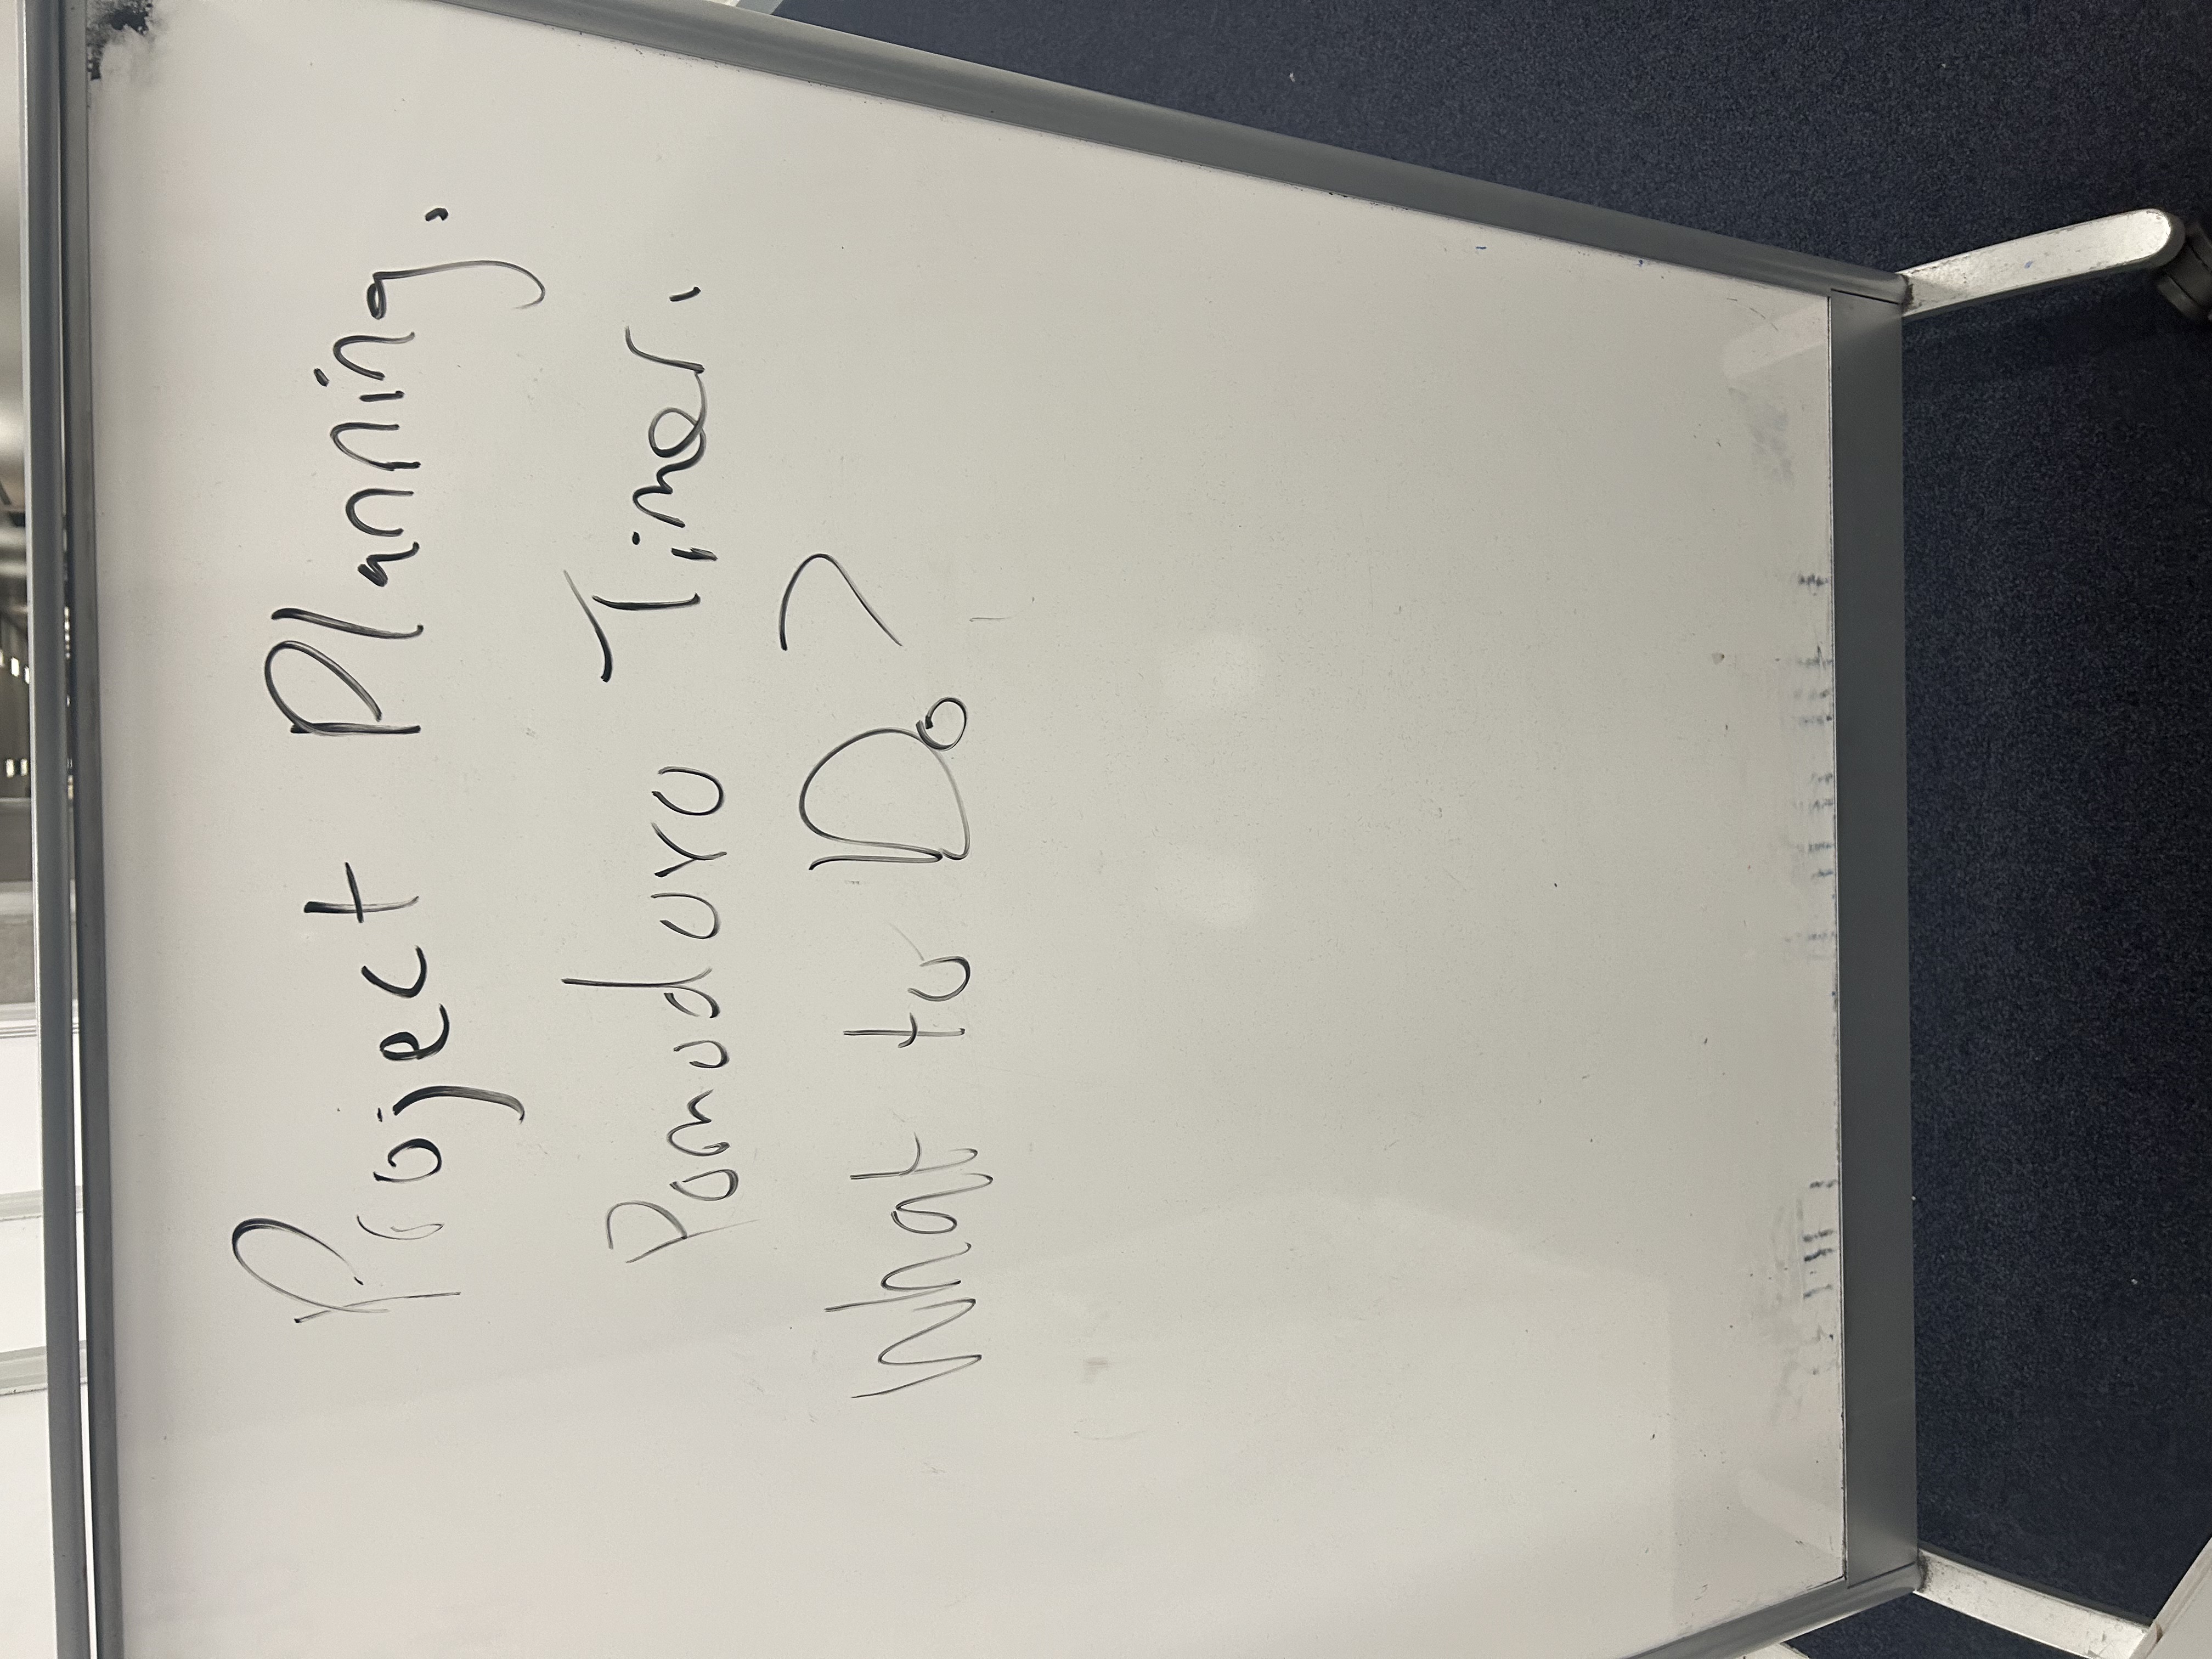 Project Planning.
Pomodoro Timer.
What to Do?